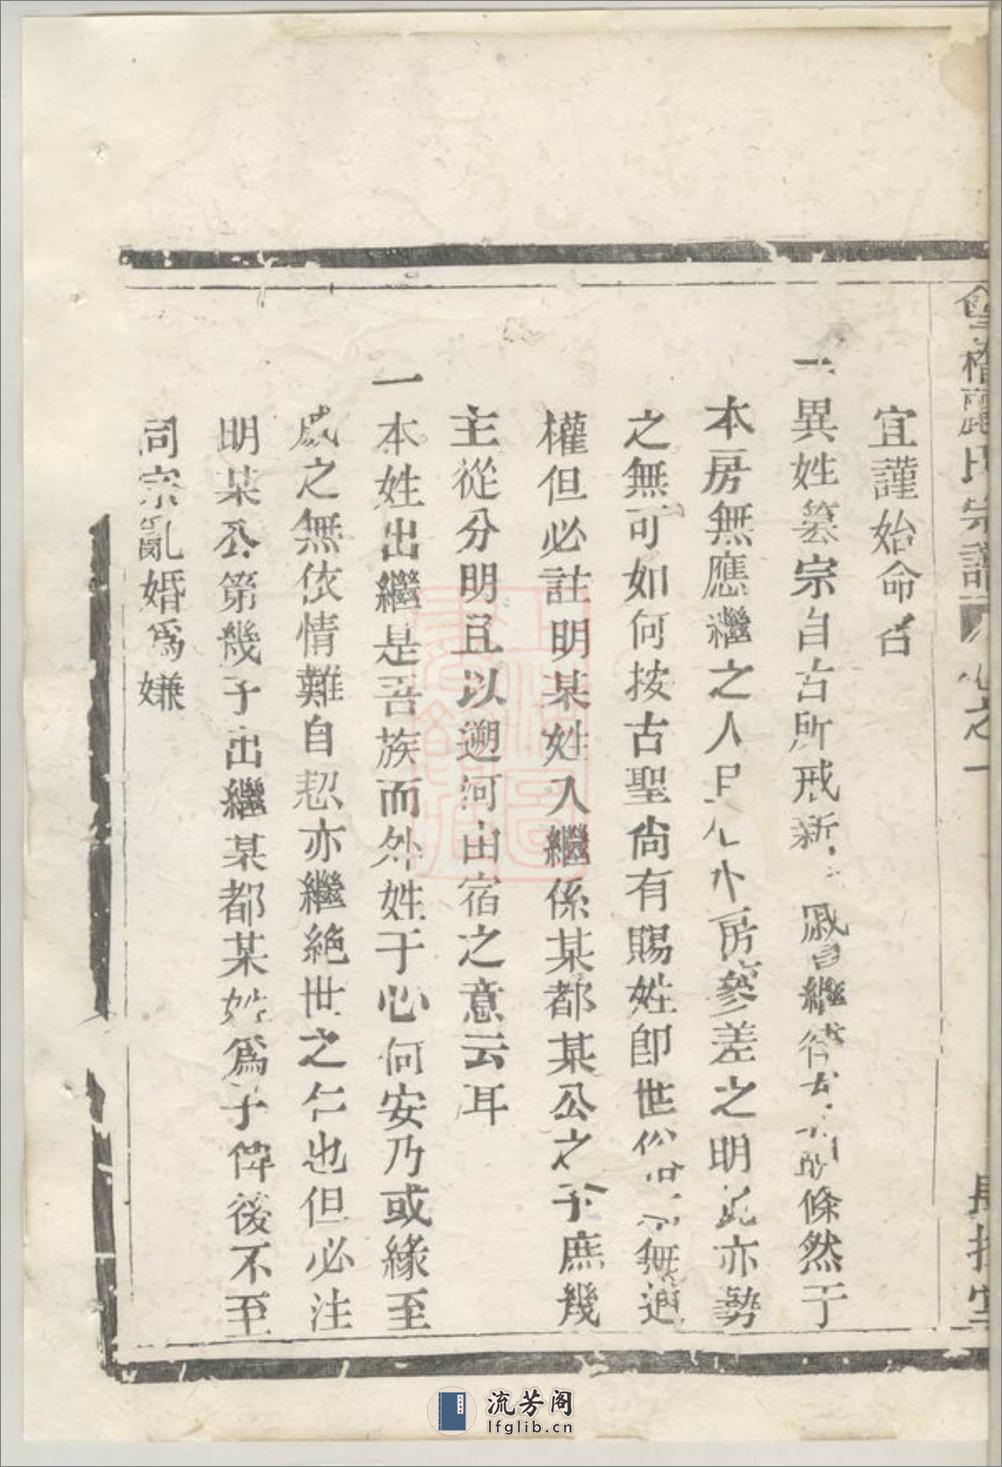 宗譜 卷之一
宜謹始命名
一異姓篡宗自古所戒 戚 繼 條然于
本房無應繼之人 房參差之明 亦勢
之無可如何按古聖尙有賜姓卽世俗 無適
權但必註明某姓入繼係某都某公之子庶幾
主從分明且以遡河由宿之意云耳
一本姓出繼是吾族而外姓于心何安乃或緣至
戚之無依情難自恝亦繼絶世之仁也但必注
明某公第幾子出繼某都某姓爲子俾後不至
同宗亂婚爲嫌
流芳阁
lfglib.cn